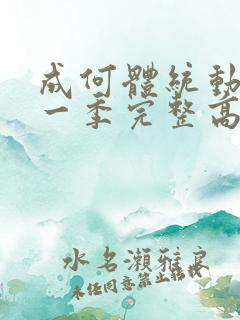 成何體統動
一季完整高
水名瀨雅良
未任同意禁止轉載